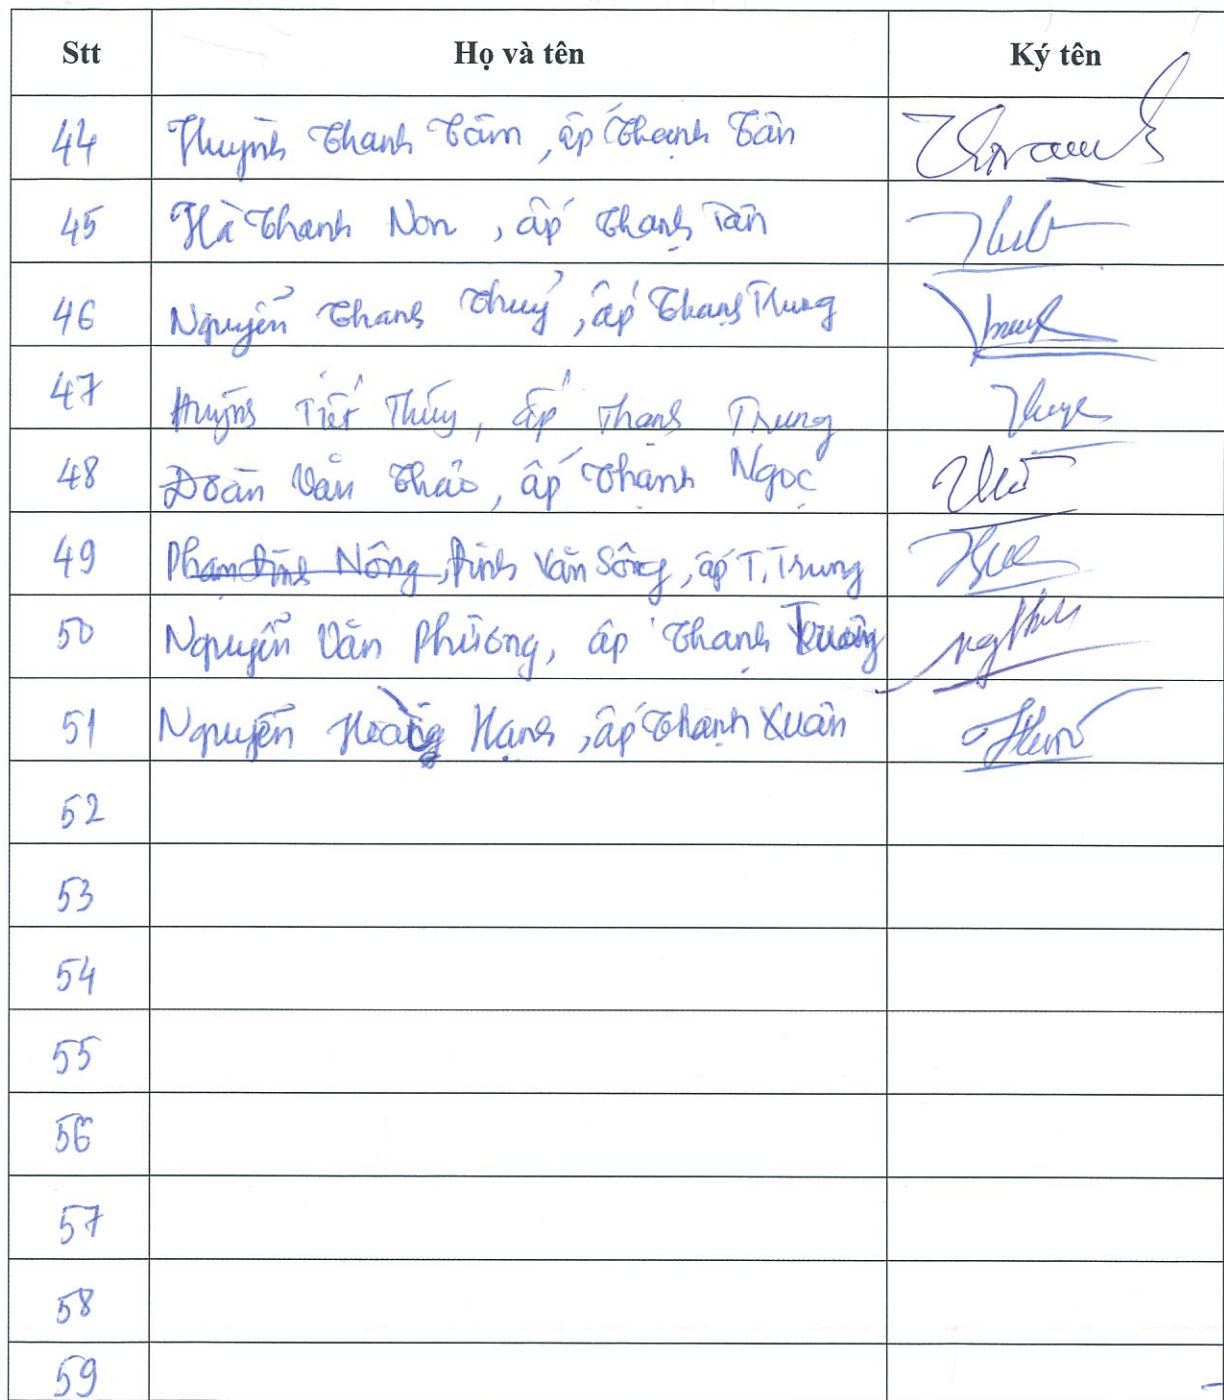 Stt Họ và tên Ký tên
44 Huỳnh Thanh Tâm, ấp Thạnh Tân
45 Hà Thanh Non, ấp Thạnh Tân
46 Nguyễn Thanh Thuỷ, ấp Thạnh Trung
47 Huỳnh Tiết Thúy, ấp Thạnh Trung
48 Đoàn Văn Thảo, ấp Thạnh Ngọc
49 Phạm Đình Nông, Đinh Văn Sông, ấp T. Trung
50 Nguyễn Văn Phương, ấp Thạnh
51 Nguyễn Hoàng Hạnh, ấp Thạnh Xuân
52
53
54
55
56
57
58
59